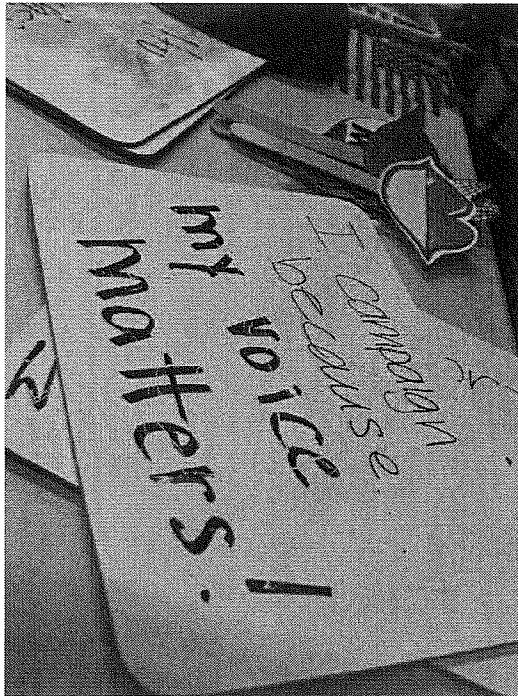 I campaign
because
my voice
matters!